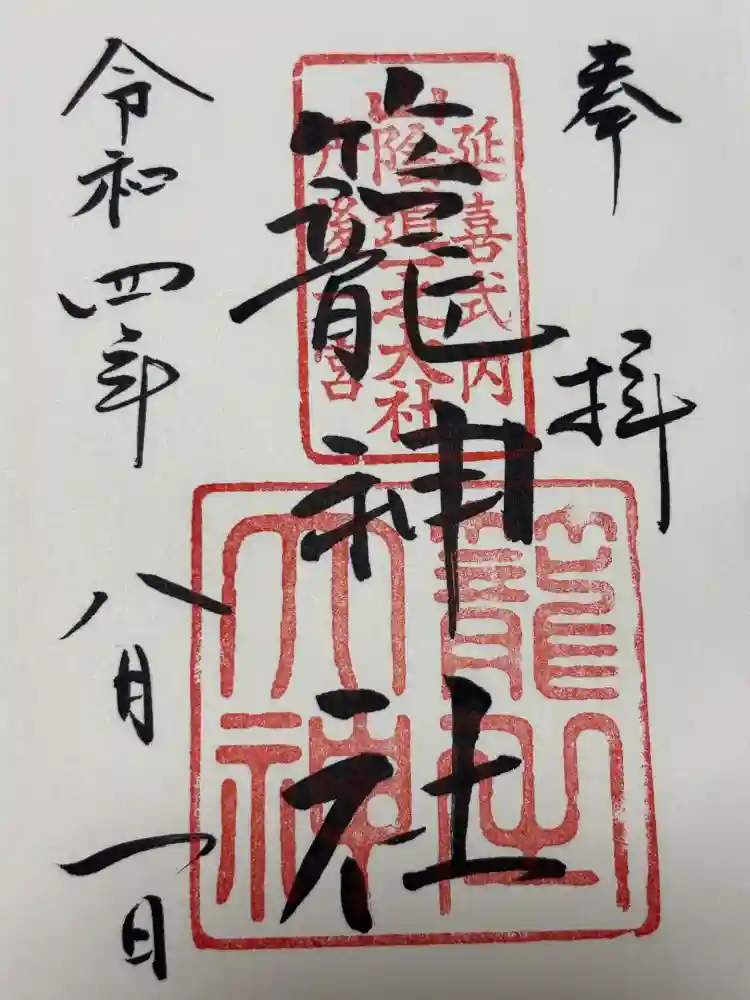 奉拝
延喜式内
山陰道一之大社
丹後一宮
籠神社
籠
大神
令和四年八月一日